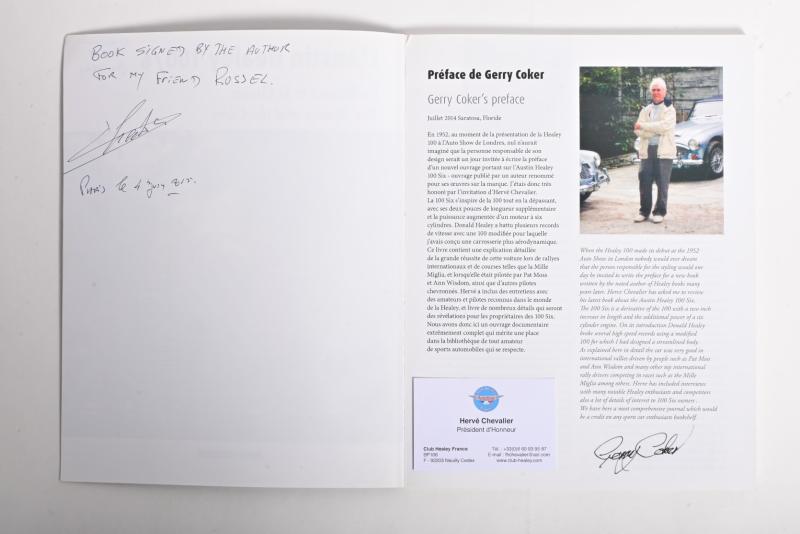 BOOK SIGNED BY THE AUTHOR
FOR MY FRIEND ROSSEL.
Paris le 4
Préface de Gerry Coker
Gerry Coker's preface
Juillet 2014 Sarasota, Floride
En 1952, au moment de la présentation de la Healey
100 à l'Auto Show de Londres, nul n'aurait
imaginé que la personne responsable de son
design serait un jour invitée à écrire la préface
d'un nouvel ouvrage portant sur l'Austin Healey
100 Six - ouvrage publié par un auteur renommé
pour ses œuvres sur la marque. J'étais donc très
honoré par l'invitation d'Hervé Chevalier.
La 100 Six s'inspire de la 100 tout en la dépassant,
avec ses deux pouces de longueur supplémentaire
et la puissance augmentée d'un moteur à six
cylindres. Donald Healey a battu plusieurs records
de vitesse avec une 100 modifiée pour laquelle
j'avais conçu une carrosserie plus aérodynamique.
Ce livre contient une explication détaillée
de la grande réussite de cette voiture lors de rallyes
internationaux et de courses telles que la Mille
Miglia, et lorsqu'elle était pilotée par Pat Moss
et Ann Wisdom, ainsi que d'autres pilotes
chevronnés. Hervé a inclus des entretiens avec
des amateurs et pilotes reconnus dans le monde
de la Healey, et livre de nombreux détails qui seront
des révélations pour les propriétaires des 100 Six.
Nous avons donc ici un ouvrage documentaire
extrêmement complet qui mérite une place
dans la bibliothèque de tout amateur
de sports automobiles qui se respecte.
When the Healey 100 made its debut at the 1952
Auto Show in London nobody would ever dream
that the person responsible for the styling would one
day be invited to write the preface for a new book
written by the noted author of Healey books many
years later. Herve Chevalier has asked me to review
his latest book about the Austin Healey 100 Six.
The 100 Six is a derivative of the 100 with a two inch
increase in length and the additional power of a six
cylinder engine. On its introduction Donald Healey
broke several high speed records using a modified
100 for which I had designed a streamlined body.
As explained here in detail the car was very good in
international rallies driven by people such as Pat Moss
and Ann Wisdom and many other top international
rally drivers competing in races such as the Mille
Miglia among others. Herve has included interviews
with many notable Healey enthusiasts and competitors
also a lot of details of interest to 100 Six owners .
We have here a most comprehensive journal which would
be a credit on any sports car enthusiasts bookshelf.
Gerry Coker
Hervé Chevalier
Président d'Honneur
Club Healey France
BP106
F - 92203 Neuilly Cedex
Tél. :
E-mail :
www.club-healey.com